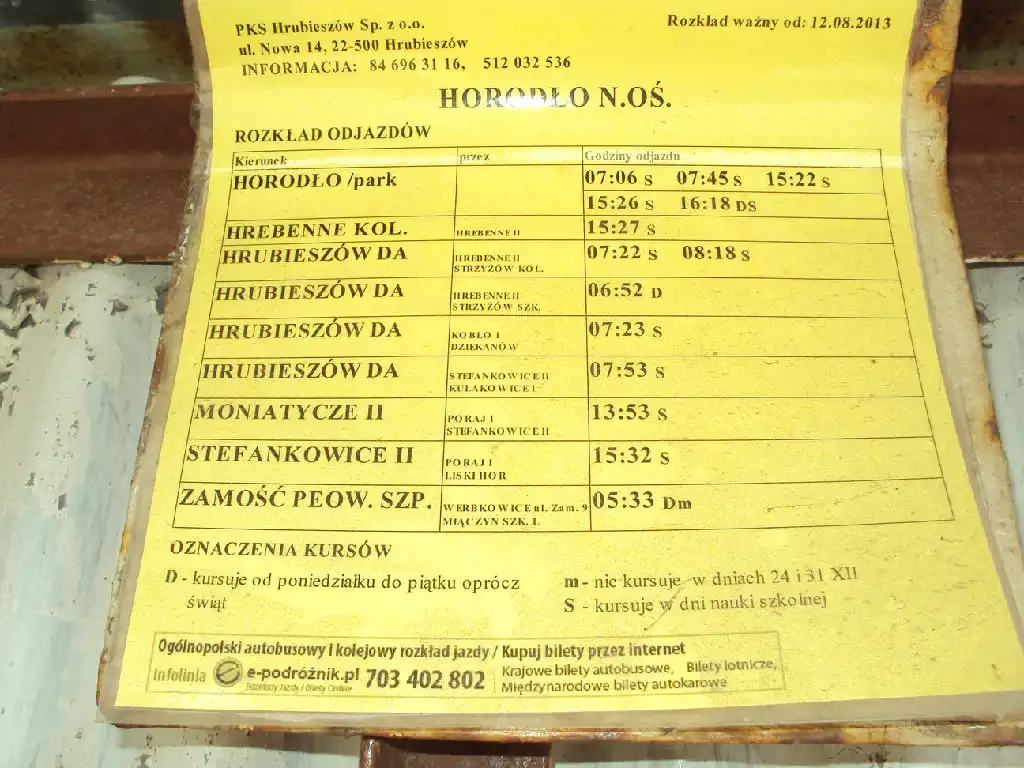 PKS Hrubieszów Sp. z o.o.
Rozkład ważny od: 12.08.2013
ul. Nowa 14, 22-500 Hrubieszów
INFORMACJA: 84 696 31 16, 512 032 536
HORODŁO N.OŚ.
ROZKŁAD ODJAZDÓW
Kierunek przez Godziny odjazdu
HORODŁO /park 07:06 S 07:45 S 15:22 S
15:26 S 16:18 DS
HREBENNE KOL. HREBENNE II 15:27 S
HRUBIESZÓW DA HREBENNE II 07:22 S 08:18 S
STRZYŻÓW KOL.
HRUBIESZÓW DA HREBENNE II 06:52 D
STRZYŻÓW SZK.
HRUBIESZÓW DA KOBŁO I 07:23 S
DZIEKANÓW
HRUBIESZÓW DA STEFANKOWICE II 07:53 S
KUŁAKOWICE I
MONIATYCZE II PORAJ I 13:53 S
STEFANKOWICE II
STEFANKOWICE II PORAJ I 15:32 S
LISKI HOR
ZAMOŚĆ PEOW. SZP. WERBKOWICE ul. Zam. 9 05:33 Dm
MIĄCZYN SZK. I.
OZNACZENIA KURSÓW
D - kursuje od poniedziałku do piątku oprócz
świąt
m - nie kursuje w dniach 24 i 31 XII
S - kursuje w dni nauki szkolnej
Ogólnopolski autobusowy i kolejowy rozkład jazdy / Kupuj bilety przez internet
Infolinia e-podróżnik.pl 703 402 802
Rozkłady Jazdy / Bilety Online
Krajowe bilety autobusowe, Bilety lotnicze,
Międzynarodowe bilety autokarowe